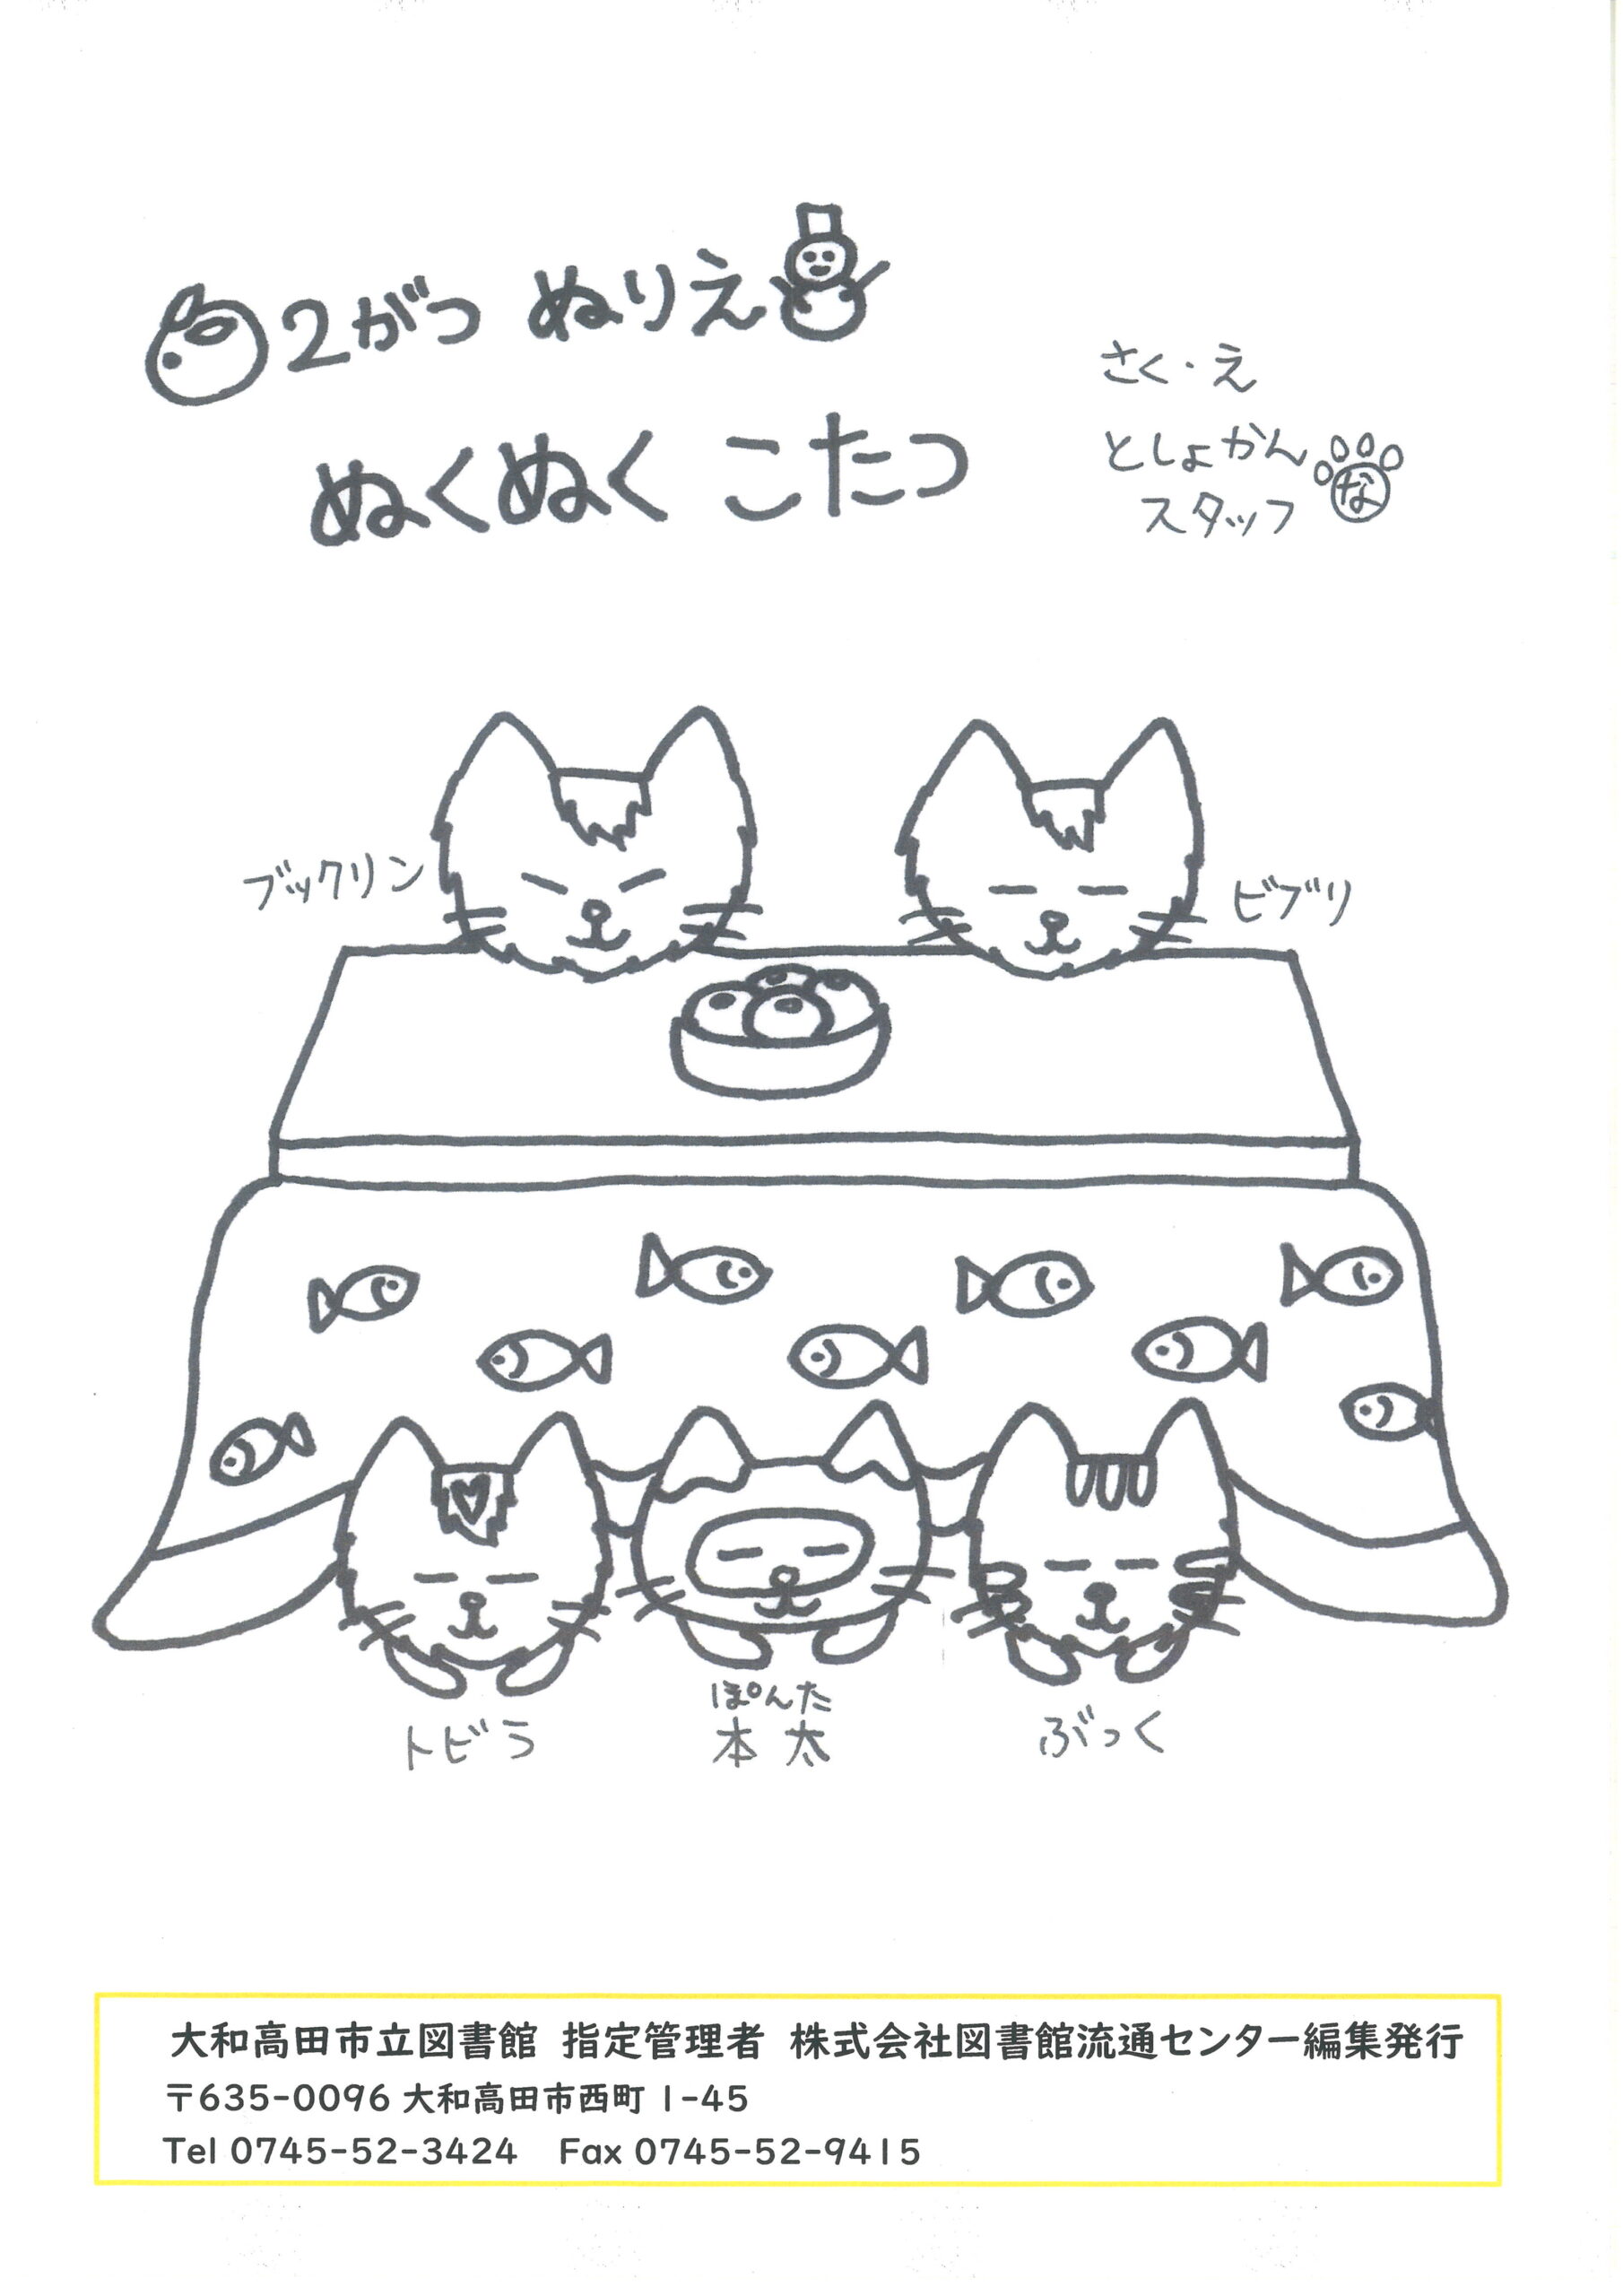 2がつ ぬりえ
ぬくぬく こたつ
さく・え
としょかん
スタッフ な
ブックリン
ビブリ
トビラ
ぽんた
本太
ぶっく
大和高田市立図書館 指定管理者 株式会社図書館流通センター編集発行
〒635-0096 大和高田市西町 1-45
Tel 0745-52-3424 Fax 0745-52-9415